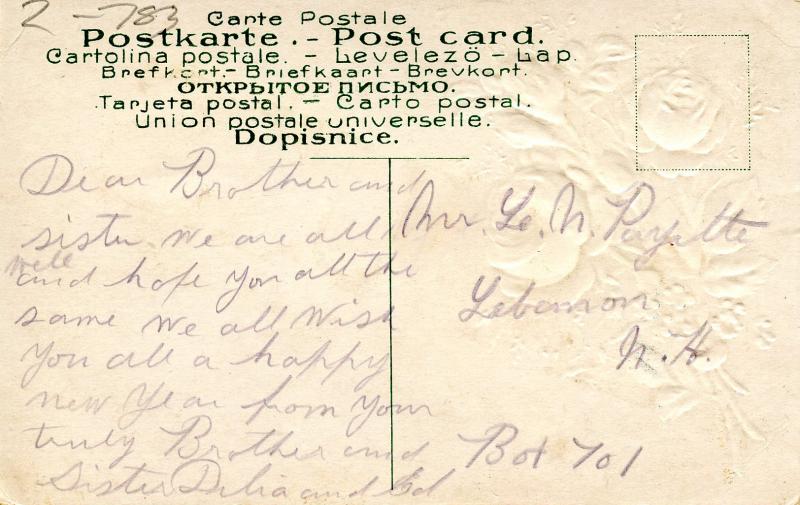 2-783
Carte Postale
Postkarte. - Post card.
Cartolina postale. - Levelezö - Lap.
Brefkort. - Briefkaart - Brevkort.
ОТКРЫТОЕ ПИСЬМО.
Tarjeta postal. - Carto postal.
Union postale universelle.
Dopisnice.
Dear Brother and
sister we are all
well
and hope you all the
same we all Wish
You all a happy
new Year from Your
truly Brother and
Sister Delia and Ed
Mr. Le. N. Payette
Lebanon
N.H.
Box 701